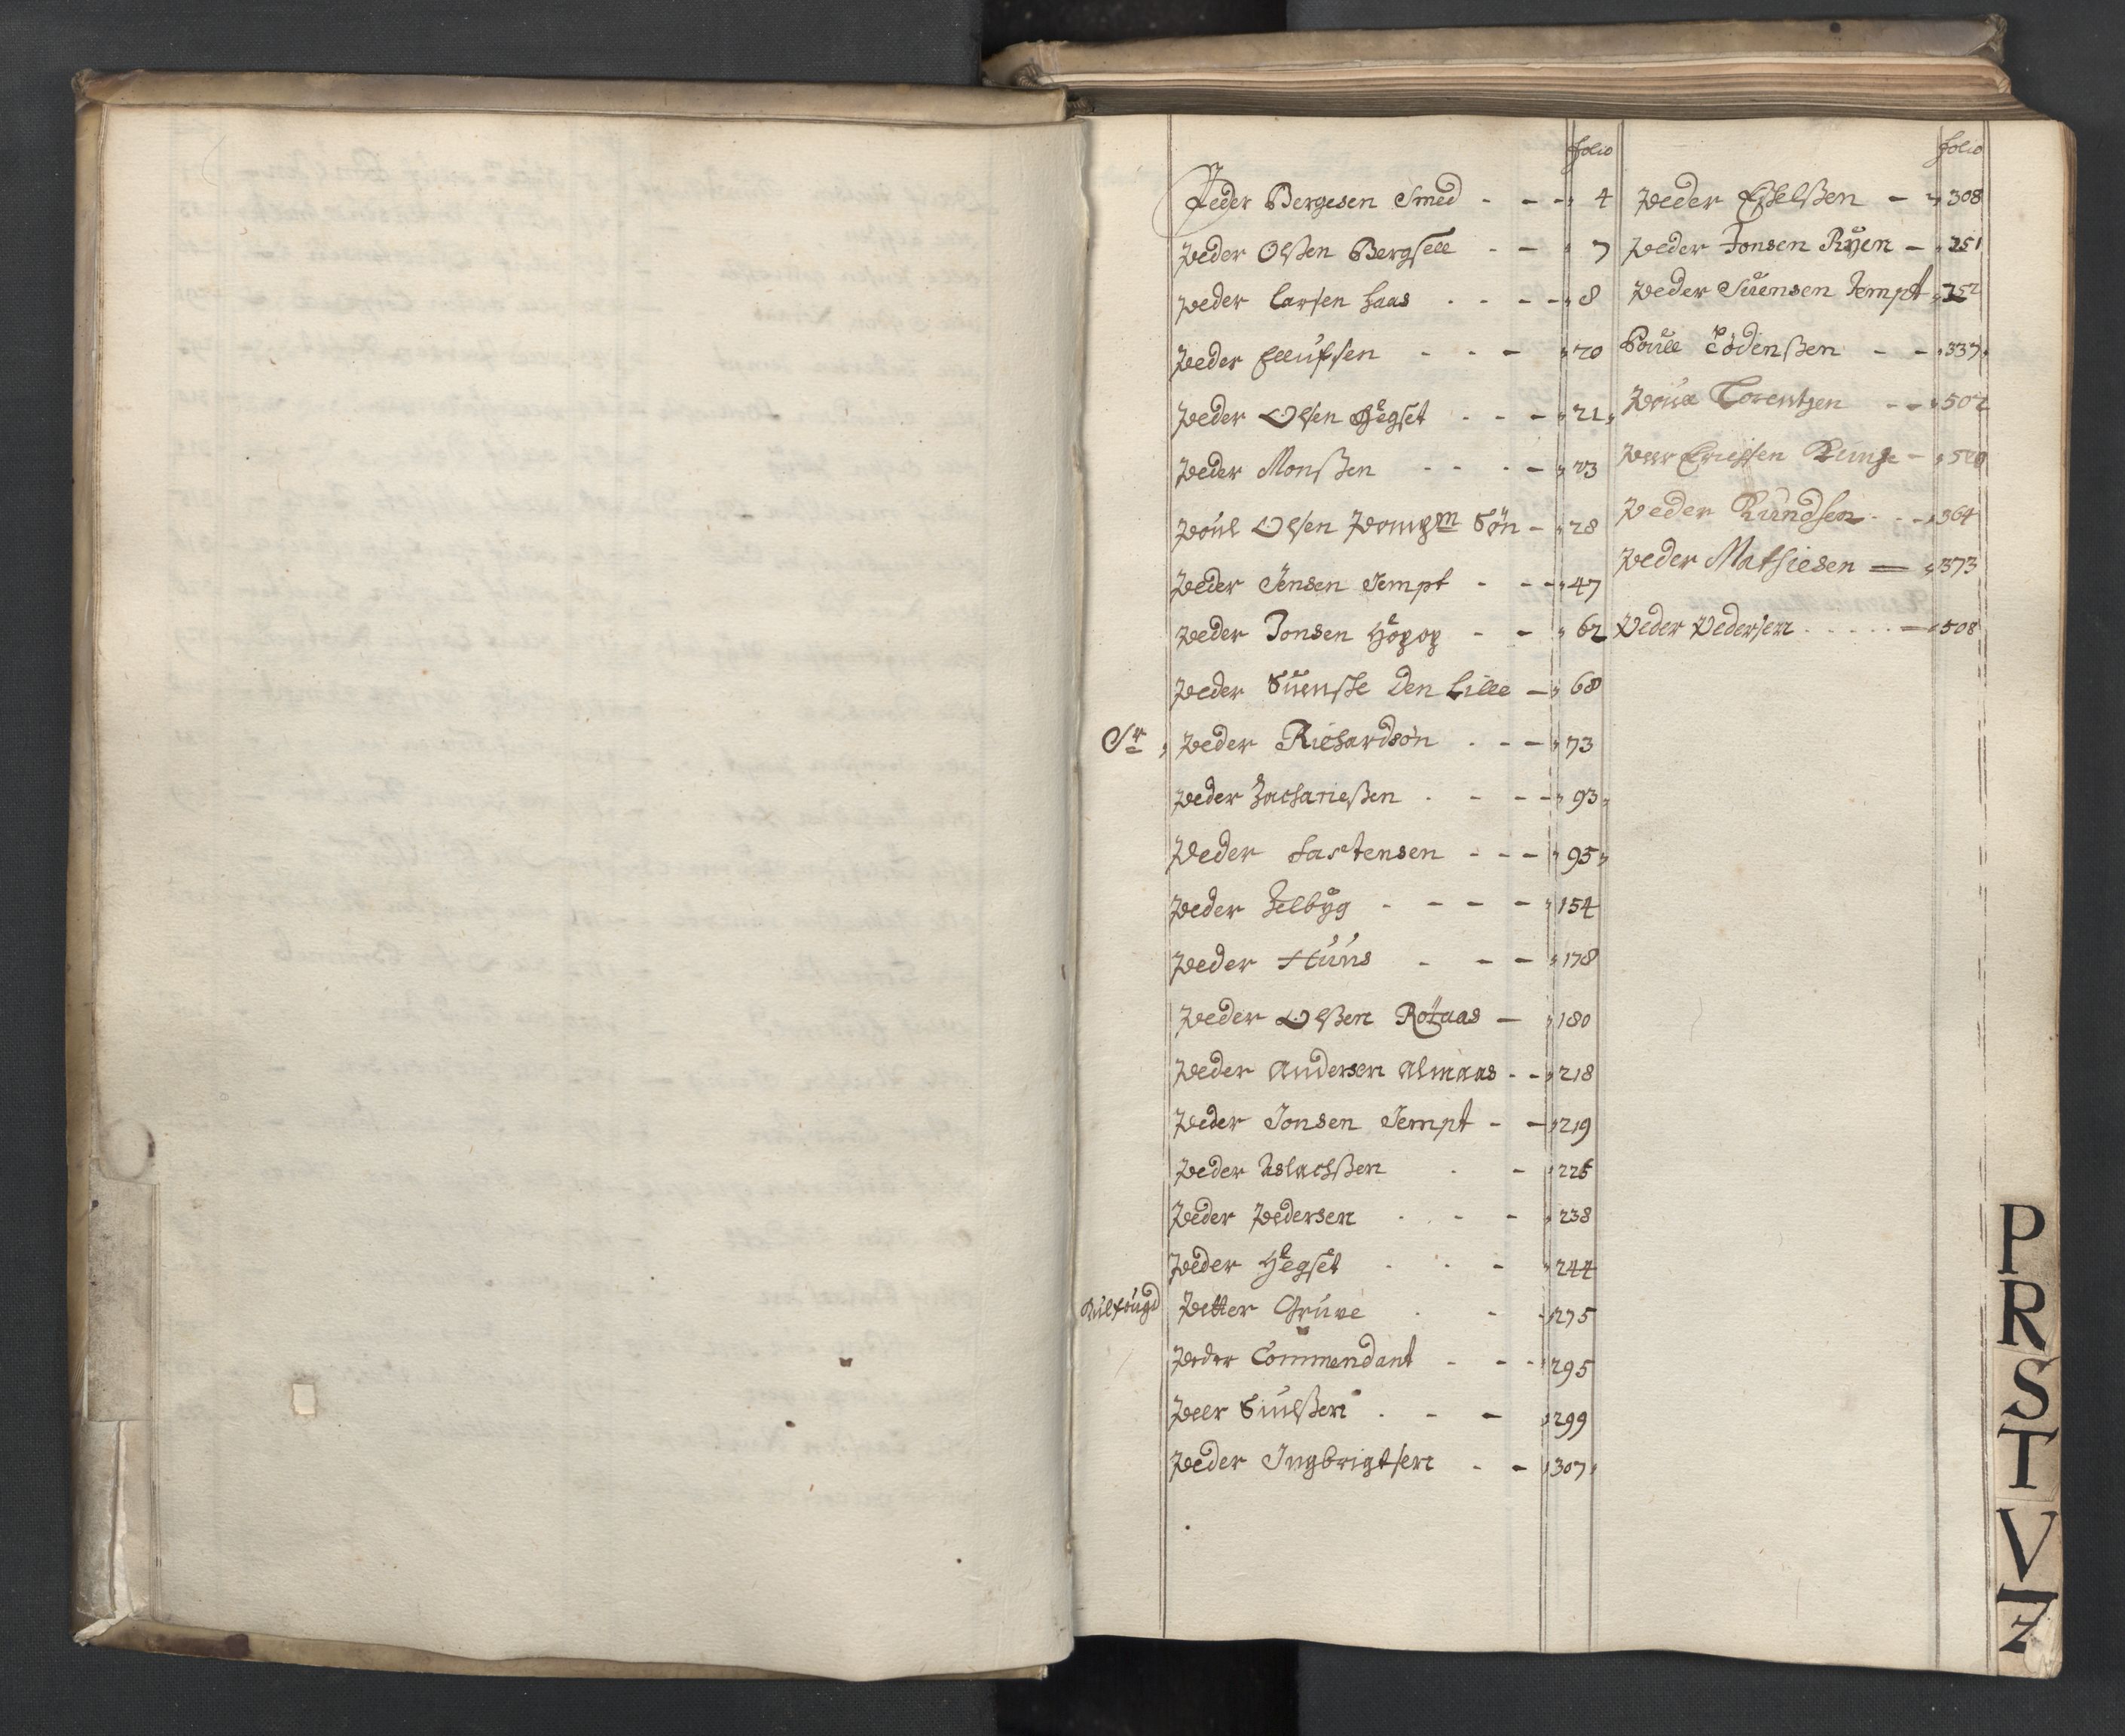 folio
Peder Bergesen Smed - - - 4
Peder Olsen Bergsell - - 7
Peder Larsen Haas - - - - 8
Peder Ellufsen - - - 20
Peder Olsen Hegset - - - 21
Peder Monsen - - - - 23
Poul Olsen Søn - 28
Peder Jensen Jempt - - - 47
Peder Jonsen - - 62
Peder Suenske Den Lille - 68
Sr Peder Richardsøn - - - 73
Peder Zachariesen - - - - 93
Peder Hastensen - - - 95
Peder Selbyg - - - - 154
Peder Huus - - - 178
Peder Olsen Röraas - 180
Peder Andersen Almaas - - 218
Peder Jonsen Jempt - - 219
Peder Aslachsen - - 226
Peder Pedersen - - - 238
Peder Hegset - - - 244
Petter Gruve - - - 275
Peder Commendant - - - 295
Peer Siulsen - - - 299
Peder Ingbrigtsen - - 307
folio
Peder Eskelsen - - 308
Peder Jonsen Ryen - 251
Peder Suensen Jempt 252
Poull Lödensen - - 337
Poull Lorentzen - - 502
Peer Erichsen - 500
Peder Knudsen - - - 364
Peder Mathiesen - 373
Peder Pedersen - 508
P
R
S
T
V
Z